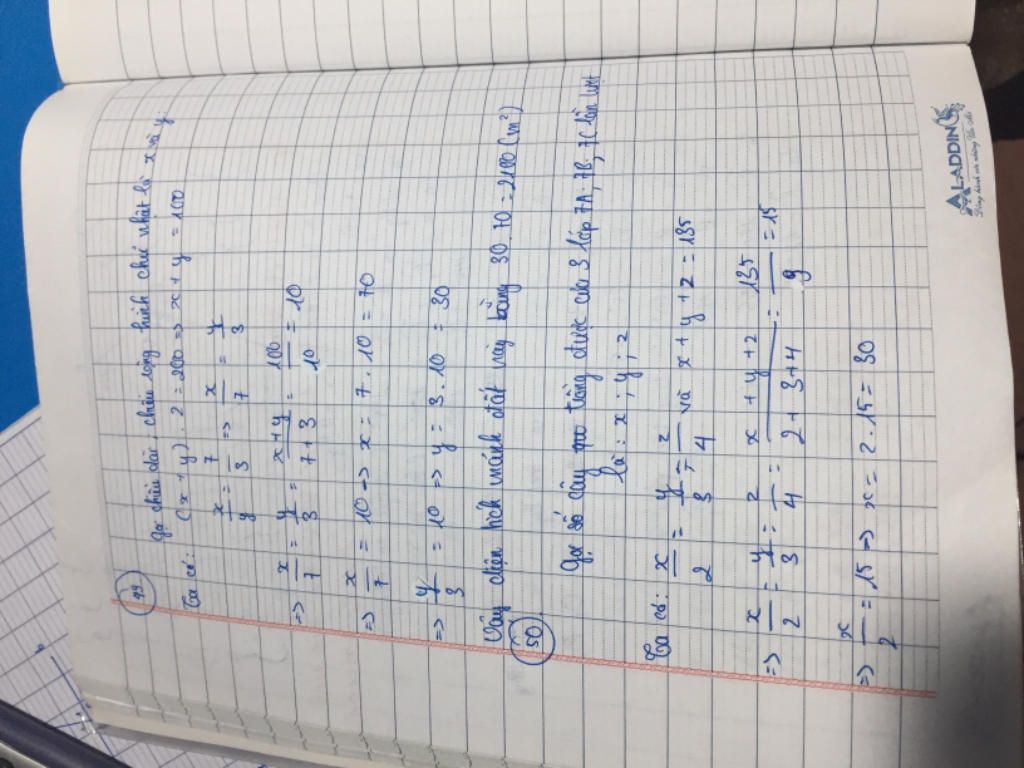 49
Gọi chiều dài, chiều rộng hình chữ nhật là x và y.
Ta có: (x + y) . 2 = 200 => x + y = 100
x/y = 7/3 => x/7 = y/3
=> x/7 = y/3 = x+y/7+3 = 100/10 = 10
=> x/7 = 10 => x = 7 . 10 = 70
=> y/3 = 10 => y = 3 . 10 = 30
Vậy diện tích mảnh đất này bằng 30 . 70 = 2100 (m²)
50
Gọi số cây trồng được của 3 lớp 7A, 7B, 7C lần lượt
là : x ; y ; z
Ta có: x/2 = y/3 = z/4 và x + y + z = 135
=> x/2 = y/3 = z/4 = x + y + z/2 + 3 + 4 = 135/9 = 15
=> x/2 = 15 => x = 2 . 15 = 30
ALADDIN